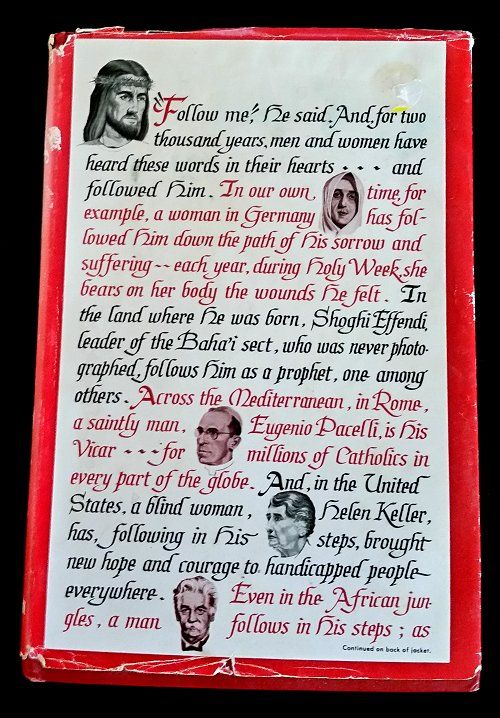 "Follow me," He said. And, for two
thousand years, men and women have
heard these words in their hearts - - - and
followed Him. In our own time, for
example, a woman in Germany has fol-
lowed Him down the path of His sorrow and
suffering -- each year, during Holy Week, she
bears on her body the wounds He felt. In
the land where He was born, Shoghi Effendi,
leader of the Baha'i sect, who was never photo-
graphed, follows Him as a prophet, one among
others. Across the Mediterranean, in Rome,
a saintly man, Eugenio Pacelli, is His
Vicar - - - for millions of Catholics in
every part of the globe. And, in the United
States, a blind woman, Helen Keller,
has, following in His steps, brought
new hope and courage to handicapped people
everywhere. Even in the African jun-
gles, a man follows in His steps; as
Continued on back of jacket.